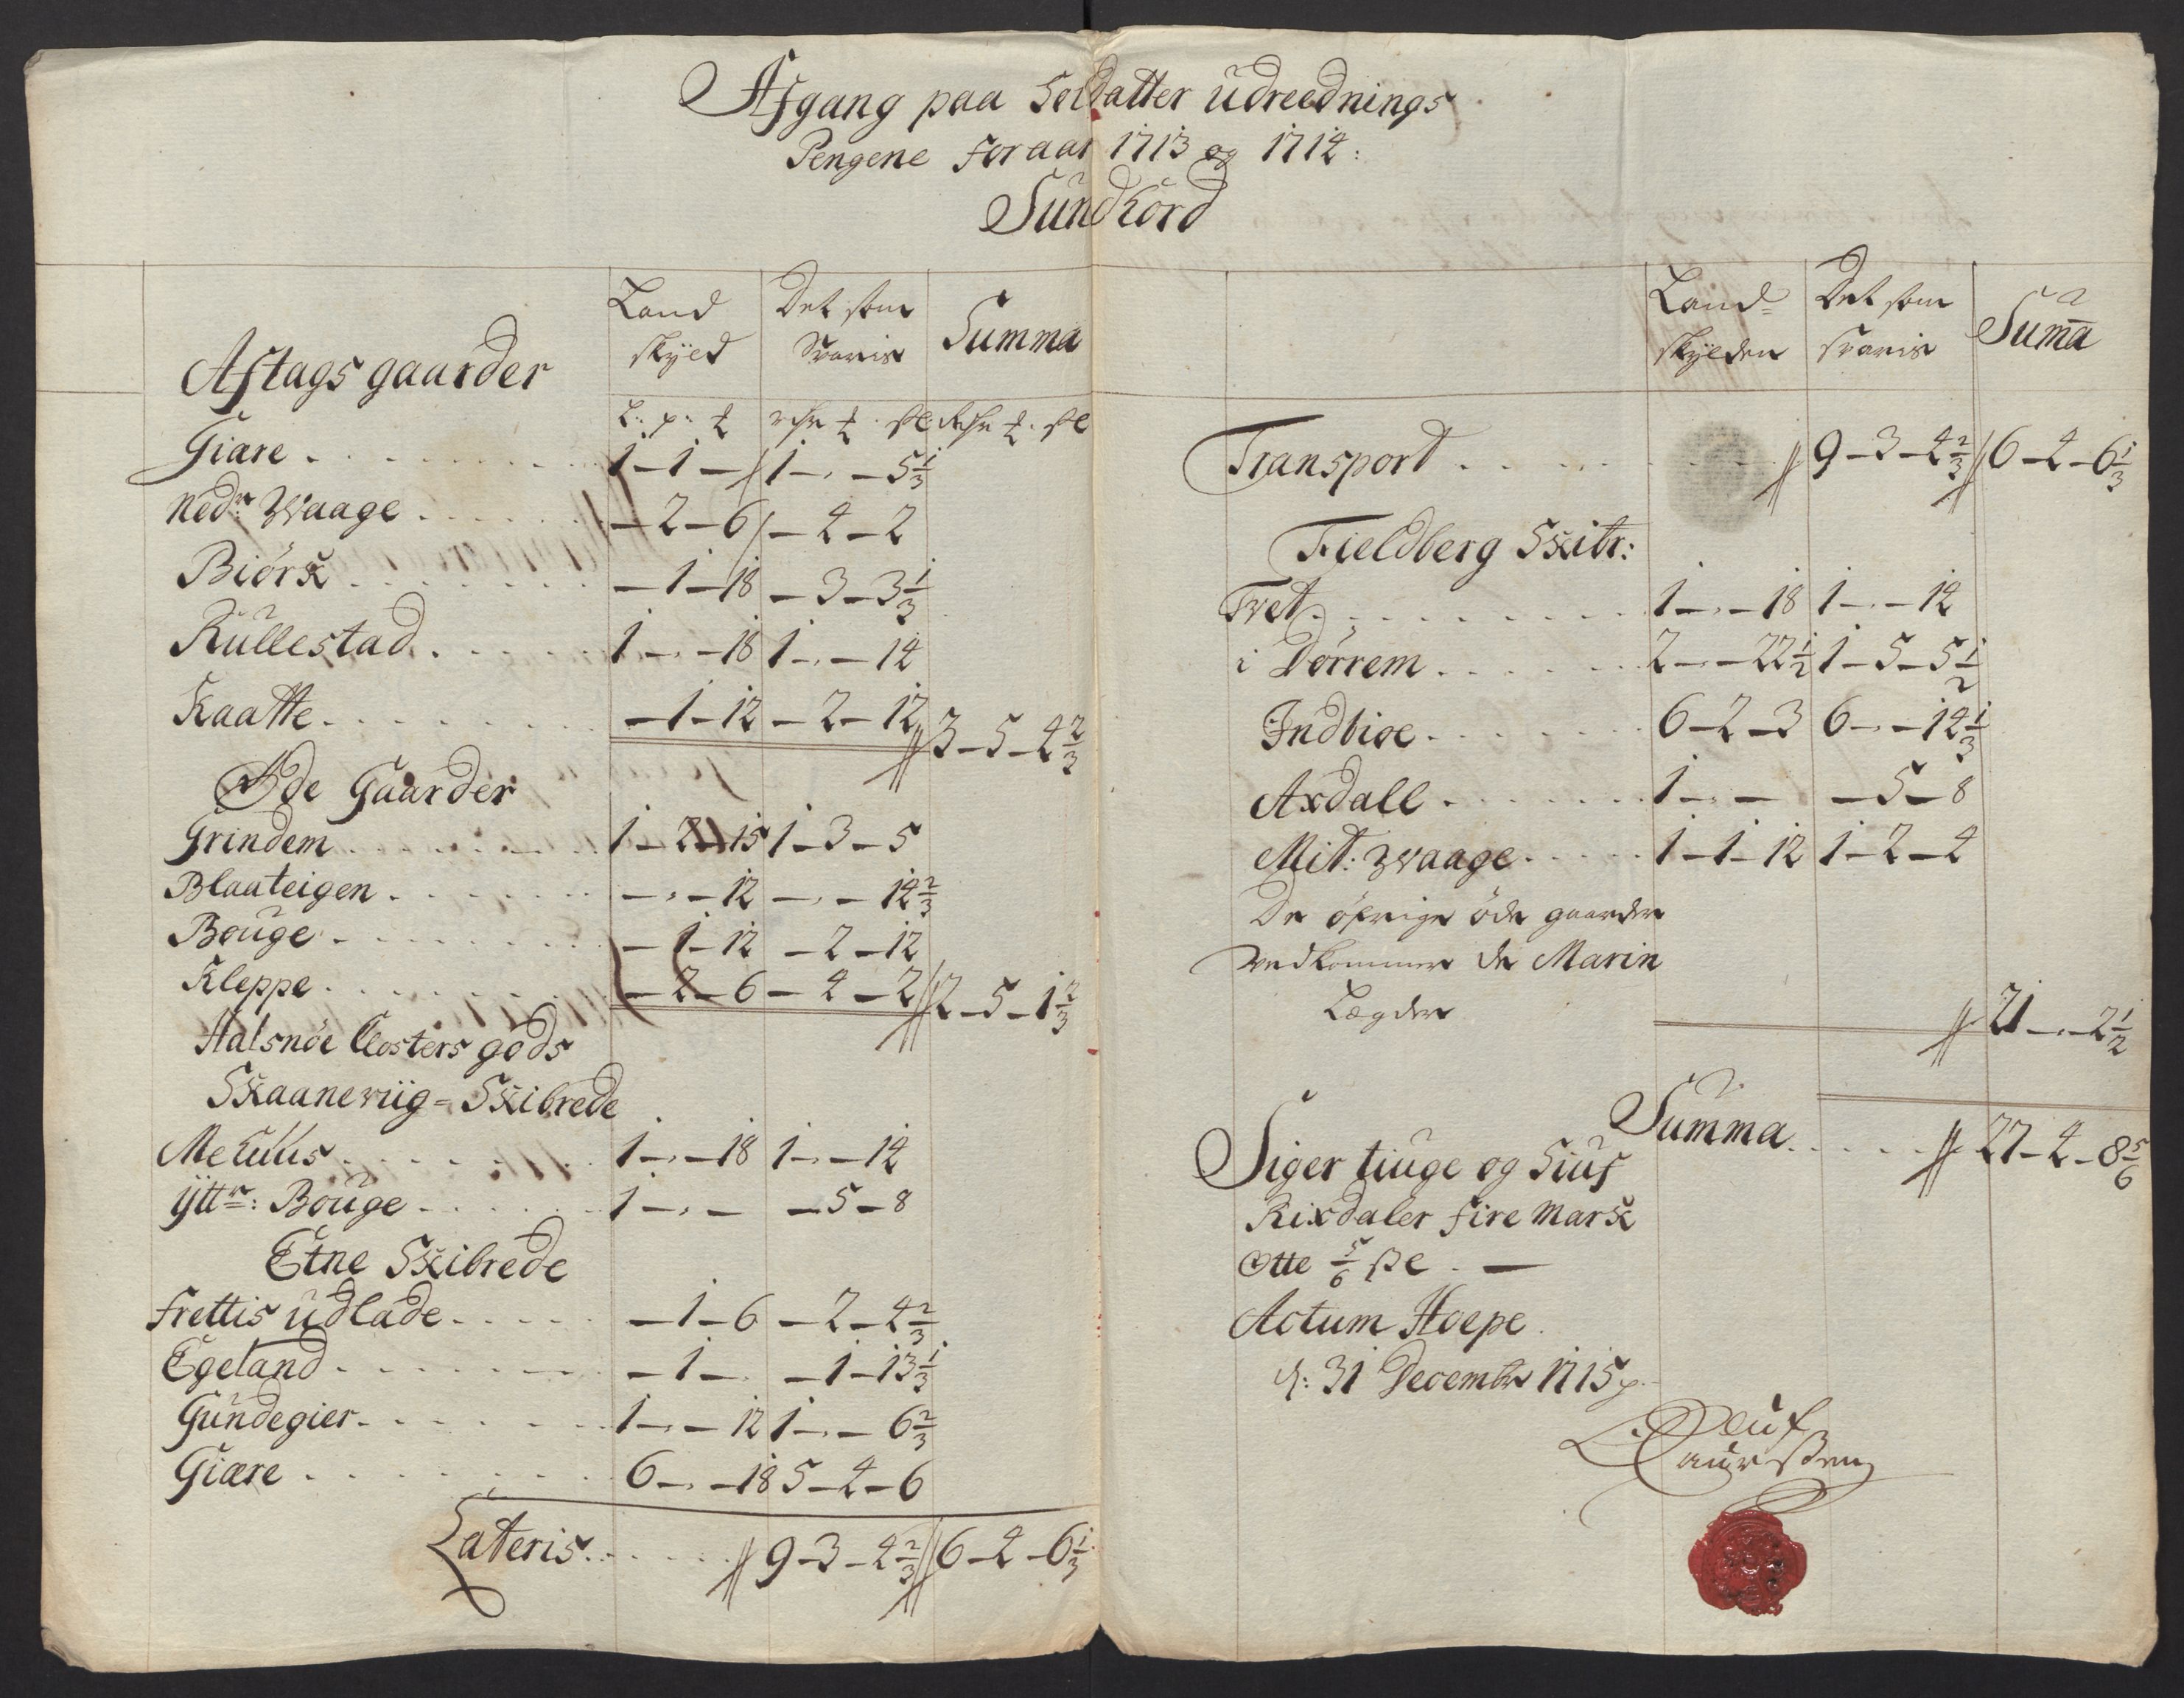 Afgang paa Soldatter udreednings
Pengene for aar 1713 og 1714:
Sundhord
Aftags gaarder
Land skyld
Det som Svaris
Summa
L: p: ℔
rdr ℔ sk
Rdr ℔ sk
Giare . . . 1 - 1 - 1 - „ - 5 1/3
Nedr: Waage . . . - 2 - 6 - 4 - 2
Biörk . . . - 1 - 18 - 3 - 3 1/3
Kullestad . . . 1 - „ - 18 1 - „ - 14
Kaatte . . . - 1 - 12 - 2 - 12 3 - 5 - 4 2/3
Øde Gaarder
Grindem . . . 1 - 2 - 15 1 - 3 - 5
Blaateigen . . . - „ - 12 - „ - 14 2/3
Bouge . . . - 1 - 12 - 2 - 12
Kleppe . . . - 2 - 6 - 4 - 2 2 - 5 - 1 2/3
Halsnöe Closters gods
Skaaneviig - Skibrede
Mehuus . . . 1 - „ - 18 1 - „ - 14
Yttr: Bouge . . . 1 - „ - - 5 - 8
Etne Skibrede
Frettis udlade . . . - 1 - 6 - 2 - 4 2/3
Egeland . . . - 1 - „ - 1 - 13 1/3
Gundegier . . . 1 - „ - 12 1 - „ - 6 2/3
Giære . . . 6 - „ - 18 5 - 4 - 6
Lateris . . . 9 - 3 - 4 2/3 6 - 4 - 6 1/3
Land= skylden
Det som svaris
Suma
Transport . . . 9 - 3 - 4 2/3 6 - 4 - 6 1/3
Fieldberg Skibr:
Tvet . . . 1 - „ - 18 1 - „ - 14
i Dörrem . . . 2 - „ - 22 1/2 1 - 5 - 5 1/2
Indbioe . . . 6 - 2 - 3 6 - „ - 14 1/3
Axdall . . . 1 - „ - - 5 - 8
Mit: Waage . . . 1 - 1 - 12 1 - 2 - 4
De öfrige öde gaarder
vedkommer de Marin
Lægder 21 - „ - 2 1/2
Summa . . . 27 - 4 - 8 5/6
Siger tiuge og Siuf
Rixdaler fire Mark
Otte 5/6 sk . —
Actum Hoepe .
d: 31 Decembr 1715
Oluf
Laurssen